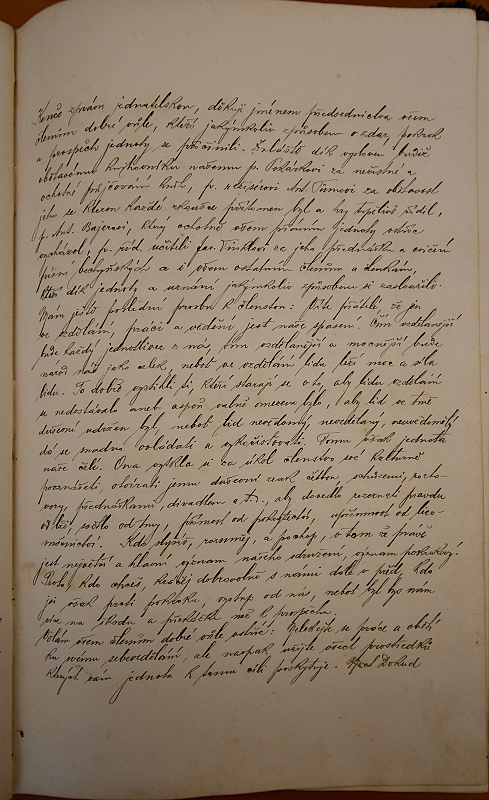 Konče zprávu jednatelskou, děkuji jménem předsednictva všem
členům dobré vůle, kteří jakýmkoliv způsobem o zdar, pokrok
a prospěch jednoty se přičinili. Zvláště dík vysloven budiž
obětavému knihovníku našemu p. Pokárkovi za nevšedné a
ochotné půjčování knih, p. Ant. Tůmovi za obětavost
jeho se kterou každé zkoušce přítomen byl a hry řídil,
p. Ant. Bajerovi, který ochotně všem přáním jednoty vždy
vyhověl, p. říd. učiteli Jar. za jeho přednášku a cvičení
písní a i všem ostatním členům a členkám,
kteří dík jednoty a uznání jakýmkoliv způsobem si zasloužili.
Mám ještě poslední prosbu k členstvu: Víte přátelé že jen
ve vzdělání, práci a vědění jest naše spasení. Čím vzdělanější
bude každý jednotlivec z nás, tím vzdělanější a mocnější bude
národ náš jako celek, neboť ve vzdělání lidu leží moc a síla
lidu. To dobře vystihli ti, kteří starají se o to, aby lidu vzdělání
se nedostávalo aneb aspoň valně omezeno bylo, aby lid ve tmě
duševní udržen byl, neboť lid nevzdělaný, neuvědomělý
dá se snadno ovládati a vykořisťovati. Tomu však jednota
naše čelí. Ona vytkla si za úkol členstvo své kulturně
povznášeti, otvírati jemu duševní zrak četbou, schůzemi, rozho-
vory, přednáškami, divadlem a.t.d., aby dovedlo rozeznati pravdu
od lži, světlo od tmy, přímost od pokrytectví, upřímnost od lico-
měrnictví. Kdo slyšíš, rozuměj, a pochop, v tom že právě
jest největší a hlavní význam našeho sdružení, význam pokrokový.
Proto, kdo chceš, kráčej dobrovolně s námi dále v před, kdo
jsi však proti pokroku, vystup od nás, neboť byl bys nám
více na škodu a překážku než k prospěchu.
Volám všem členům dobré vůle vstříc: Nelekejte se práce a obětí
ku svému sebevzdělání, ale naopak užijte všech prostředků
kterých vám jednota k tomu cíli poskytuje. Karel Dokud